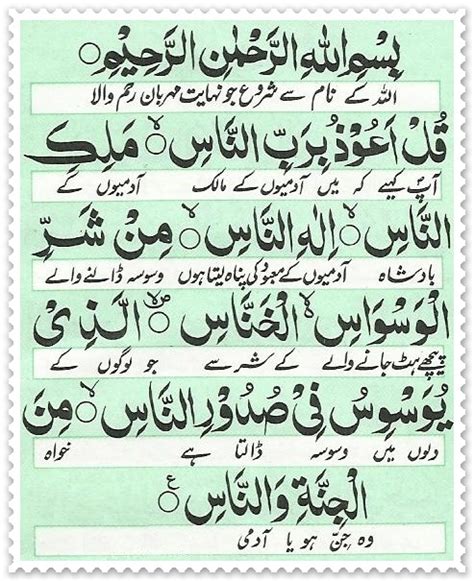 بِسْمِ اللهِ الرَّحْمٰنِ الرَّحِيْمِ ○
اللہ کے نام سے شروع جو نہایت مہربان رحم والا
قُلْ اَعُوْذُ بِرَبِّ النَّاسِ ۙ○ مَلِكِ
آپؐ کہیے کہ میں آدمیوں کے مالک آدمیوں کے
النَّاسِ ۙ○ اِلٰهِ النَّاسِ ۙ○ مِنْ شَرِّ
بادشاہ آدمیوں کے معبود کی پناہ لیتا ہوں وسوسہ ڈالنے والے
الْوَسْوَاسِ ۙ الْخَنَّاسِ ۪ۙ○ الَّذِیْ
پیچھے ہٹ جانے والے کے شر سے جو لوگوں کے
یُوَسْوِسُ فِیْ صُدُوْرِ النَّاسِ ۙ○ مِنَ
دلوں میں وسوسہ ڈالتا ہے خواہ
الْجِنَّةِ وَ النَّاسِ ○ۧ
وہ جِنّ ہو یا آدمی